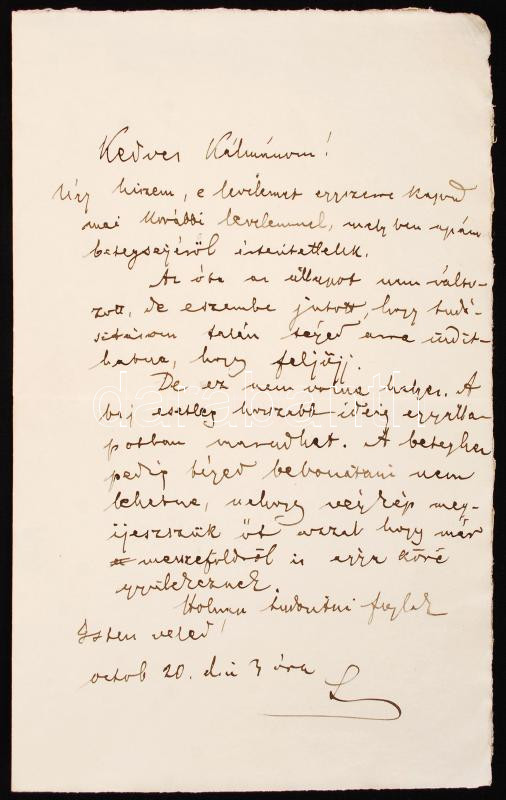 Kedves Kálmánom!
Úgy hiszem, e levelemet egyszerre kapod
mai korábbi levelemmel, melyben apám
betegségéről értesitettelek.
Az óta az állapot nem válto-
zott, de eszembe jutott, hogy tudó-
sitásom talán téged arra indit-
hatna, hogy feljőjj.
De ez nem volna helyes. A
baj esetleg hosszabb ideig egy álla-
potban maradhat. A beteghez
pedig téged bebocsátani nem
lehetne, nehogy végkép meg-
ijesszük őt azzal hogy már
messzeföldről is ágya köré
gyülekeznek.
Holnap tudositni foglak
Isten veled!
octob 20. déli 3 óra
L
darabanth